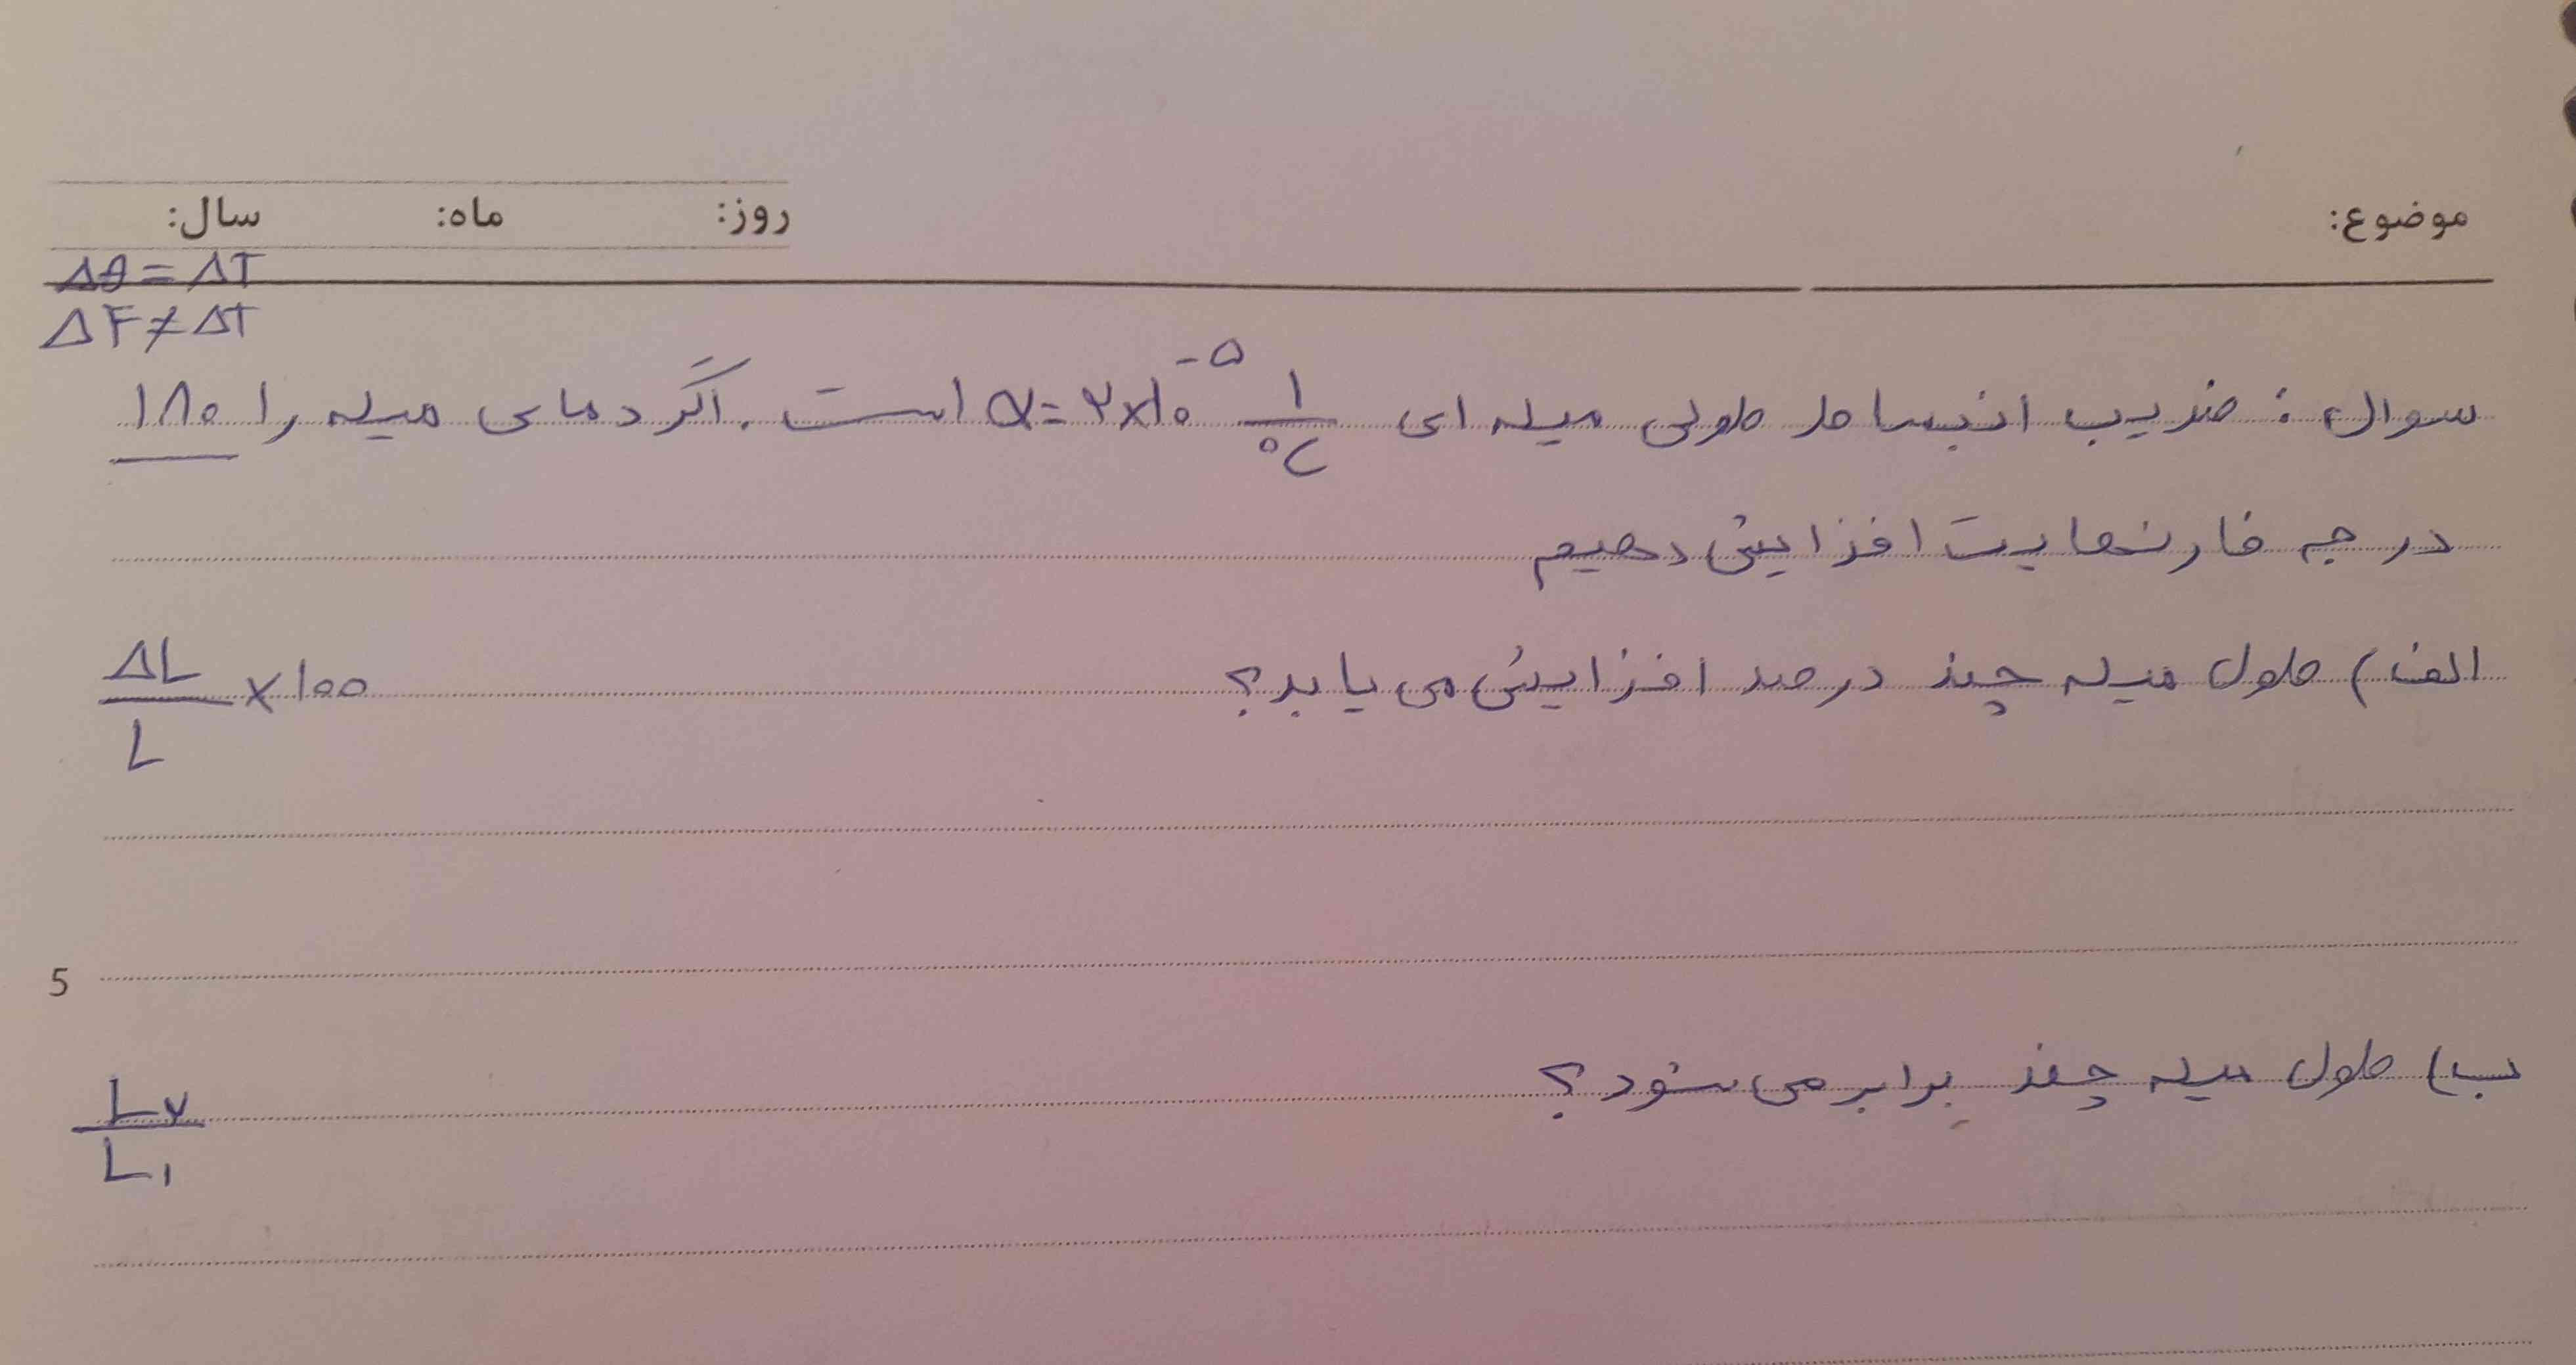 موضوع: روز: ماه: سال:
Δθ = ΔT
ΔF ≠ ΔT
سوال: ضریب انبساط طولی میله ای α = ۲×۱۰^-۵ ۱/°C است. اگر دمای میله را ۱۸۰
درجه فارنهایت افزایش دهیم
الف) طول میله چند درصد افزایش می یابد؟ ΔL/L ×۱۰۰
5
ب) طول میله چند برابر می شود؟ L۲/L۱